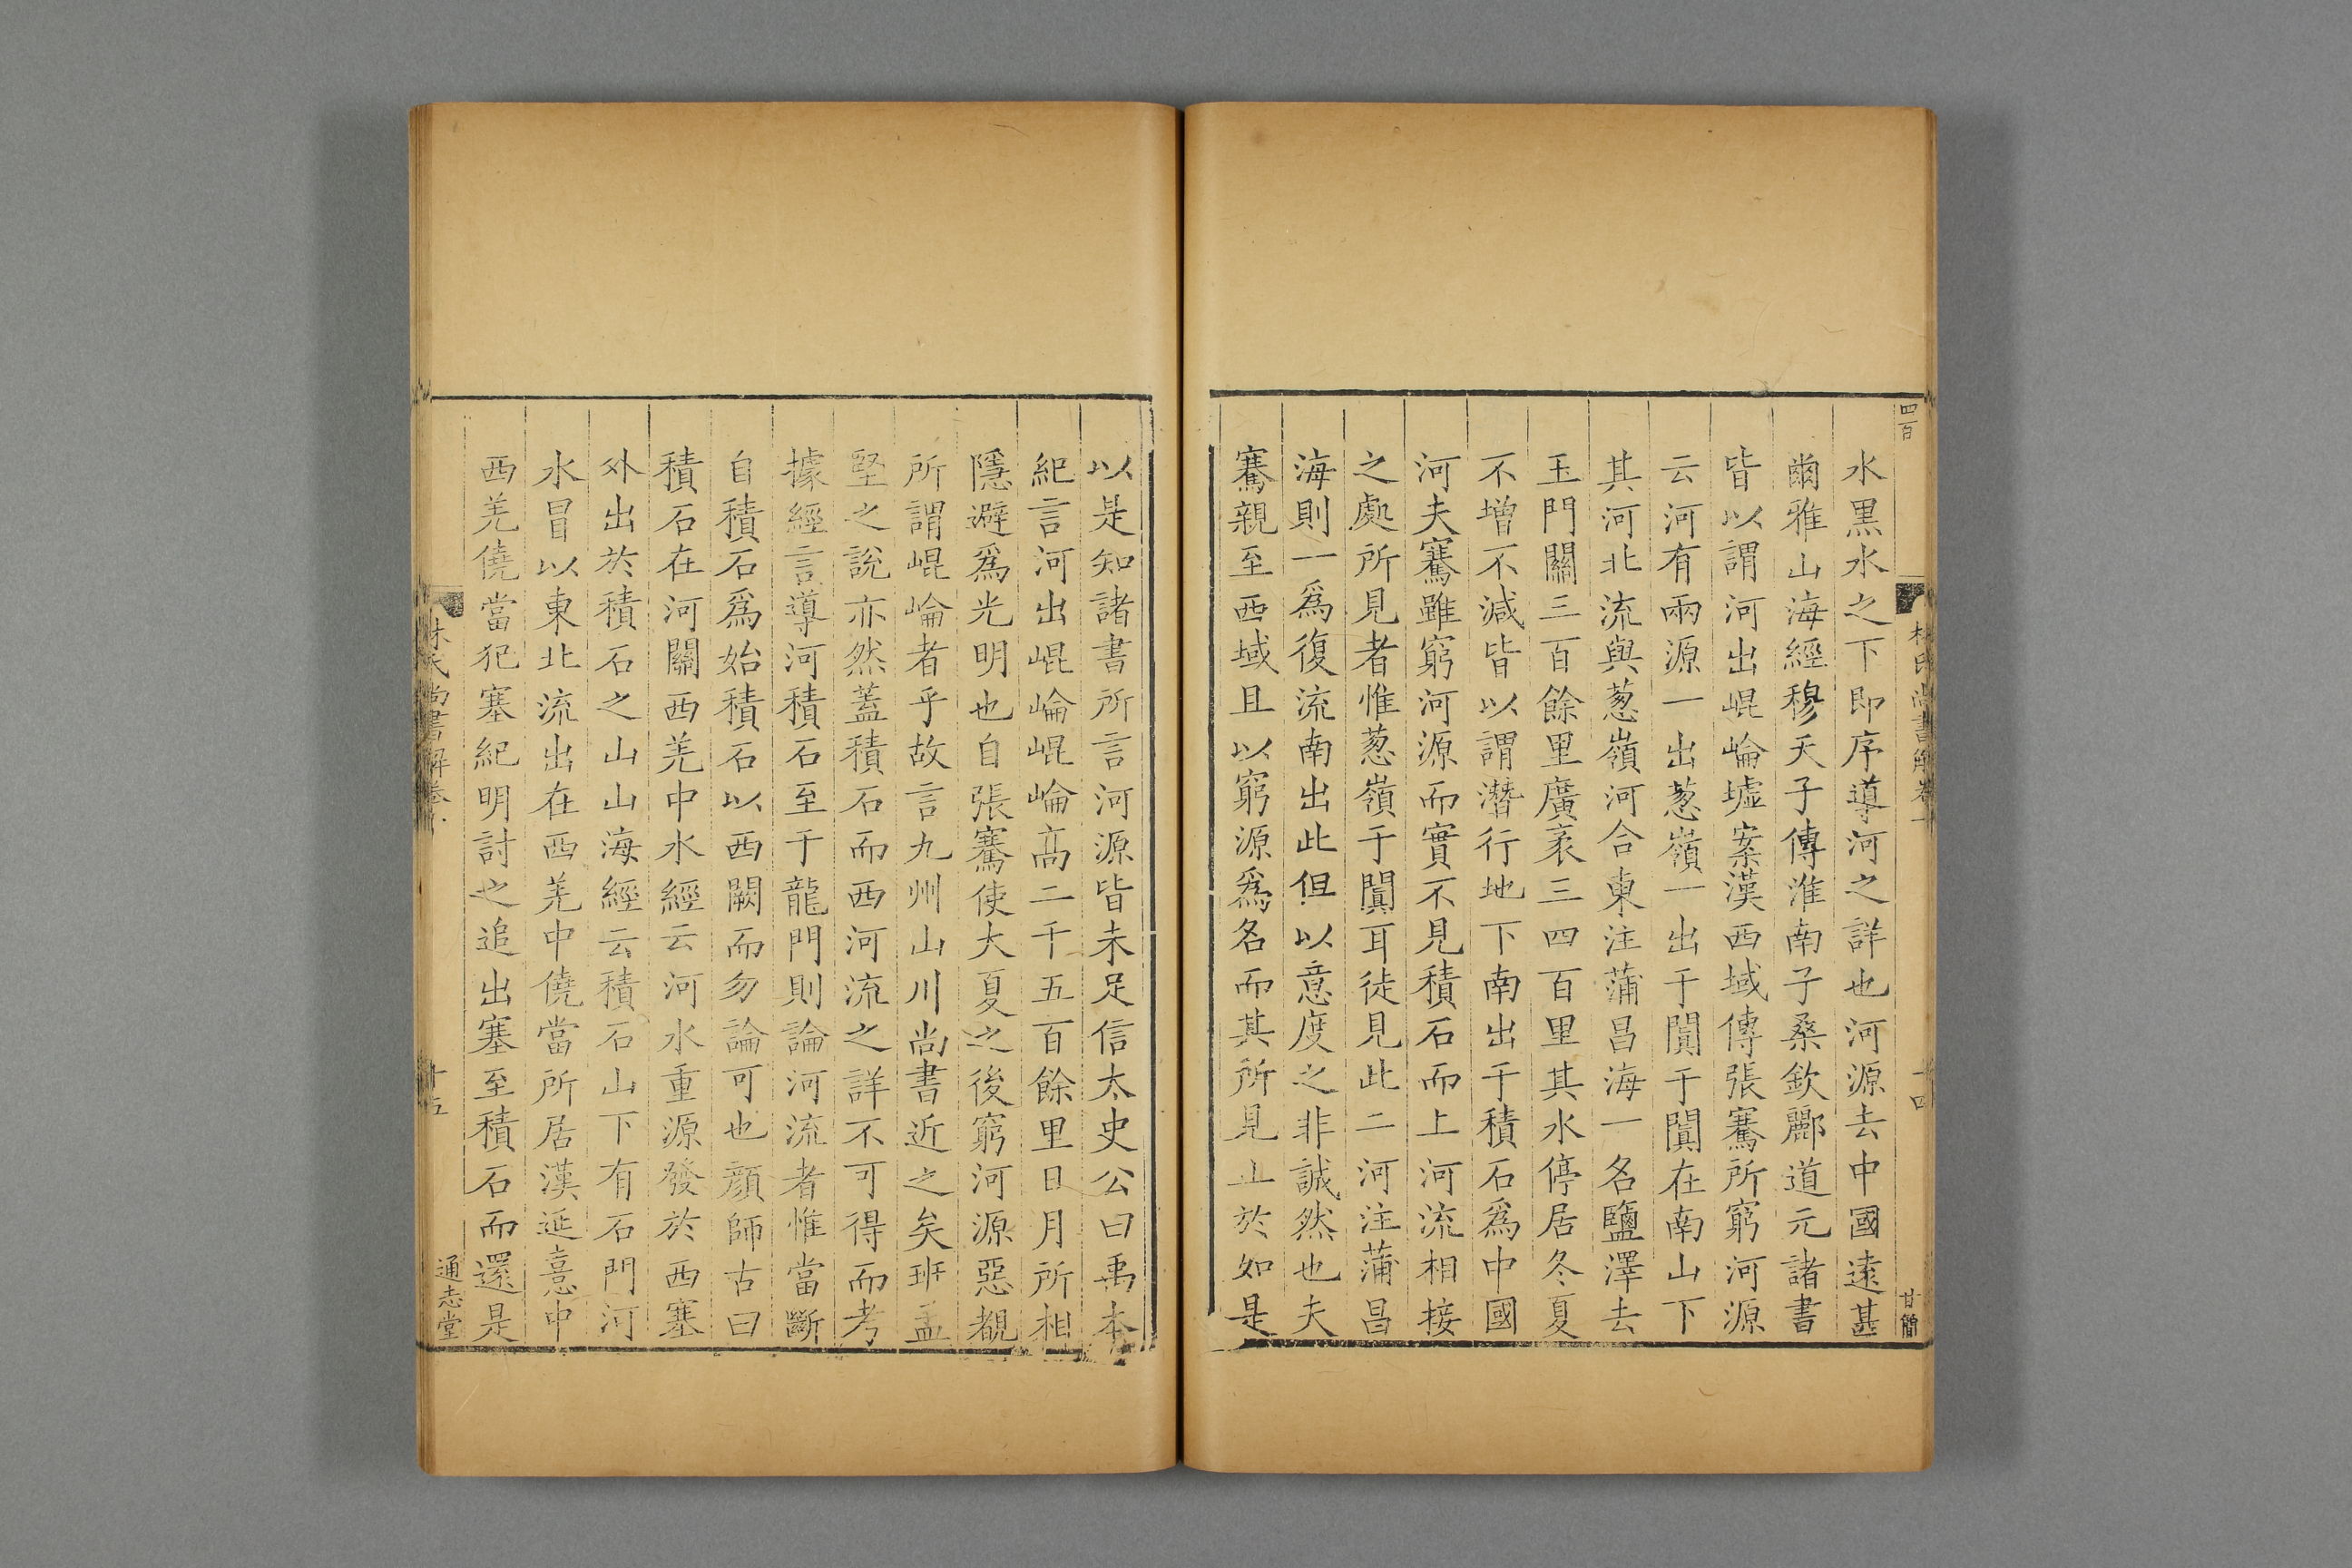 四百
林氏尚書解卷十
十四
甘簡
水黑水之下即序導河之詳也河源去中國遠甚
爾雅山海經穆天子傳淮南子桑欽酈道元諸書
皆以謂河出崐崘墟案漢西域傳張騫所窮河源
云河有兩源一出葱嶺一出于闐于闐在南山下
其河北流與葱嶺河合東注蒲昌海一名鹽澤去
玉門關三百餘里廣袤三四百里其水停居冬夏
不增不減皆以謂潛行地下南出于積石為中國
河夫騫雖窮河源而實不見積石而上河流相接
之處所見者惟葱嶺于闐耳徒見此二河注蒲昌
海則一為復流南出此但以意度之非誠然也夫
騫親至西域且以窮源為名而其所見止於如是
以是知諸書所言河源皆未足信太史公曰禹本
紀言河出崐崘崐崘髙二千五百餘里日月所相
隱避為光明也自張騫使大夏之後窮河源惡覩
所謂崐崘者乎故言九州山川尚書近之矣班孟
堅之說亦然蓋積石而西河流之詳不可得而考
據經言導河積石至于龍門則論河流者惟當斷
自積石為始積石以西闕而勿論可也顔師古曰
積石在河關西羌中水經云河水重源發於西塞
外出於積石之山山海經云積石山下有石門河
水冒以東北流出在西羌中僥當所居漢延憙中
西羌僥當犯塞紀明討之追出塞至積石而還是
林氏尚書解卷十
十五
通志堂